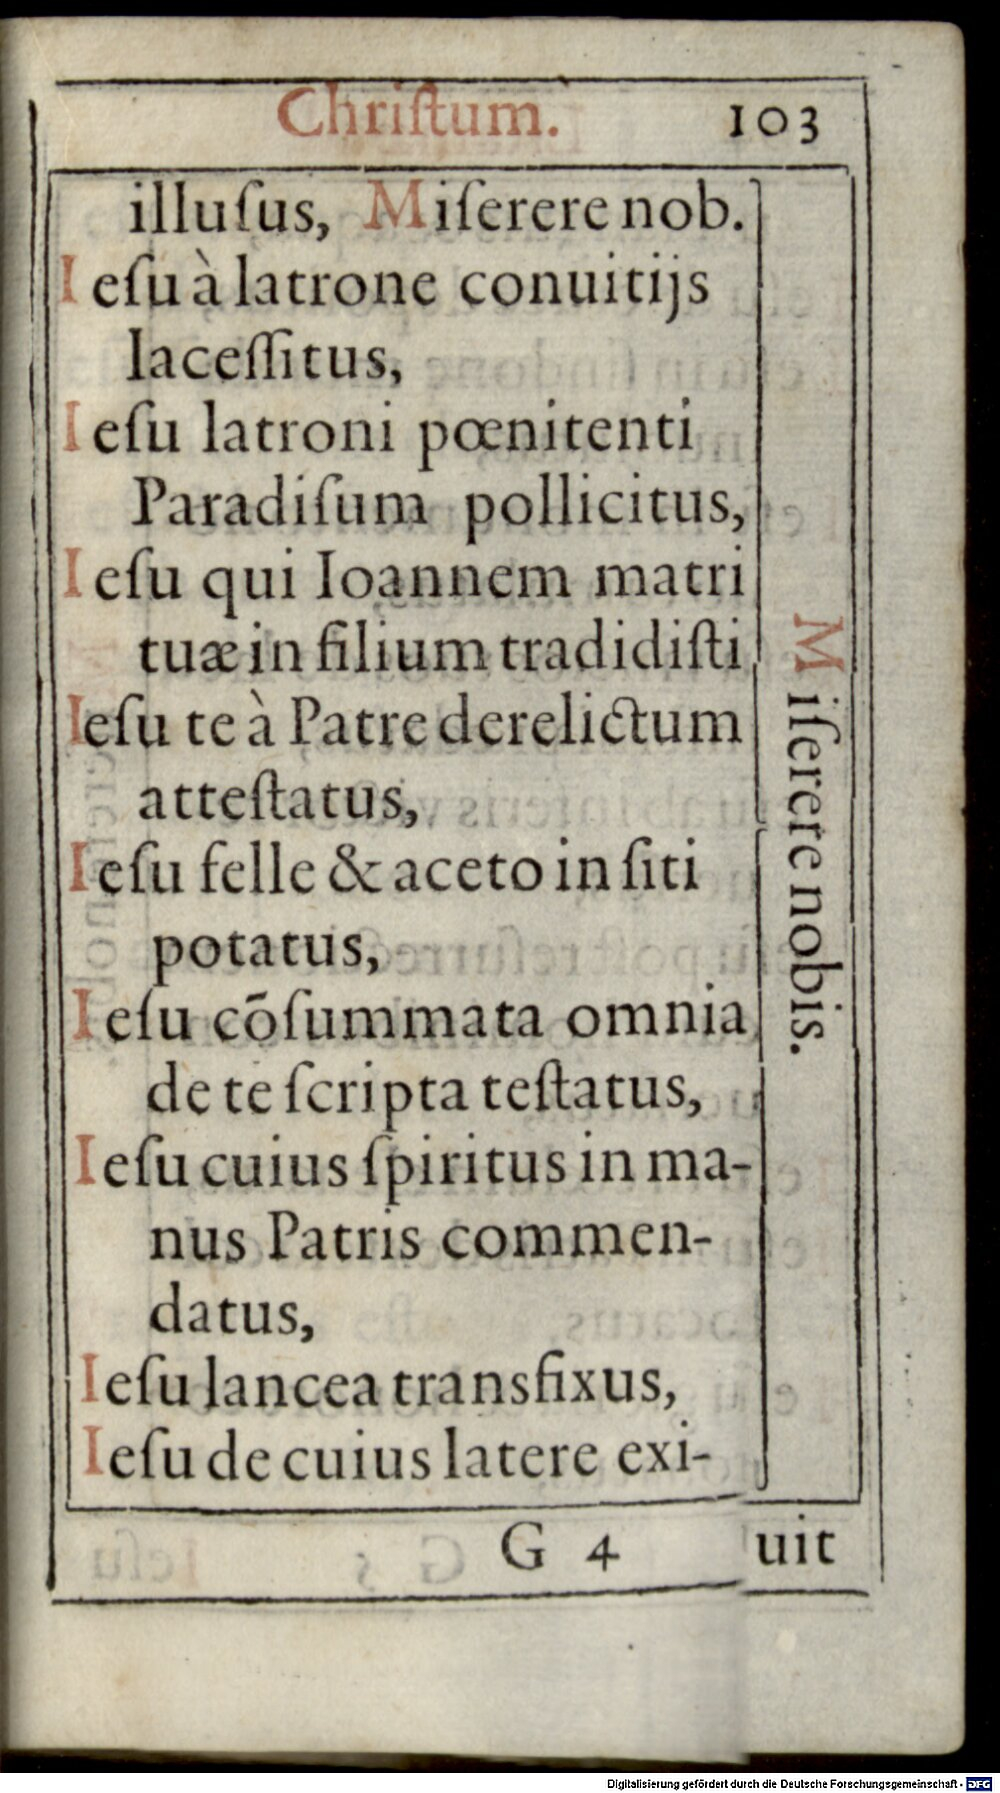 Chriſtum. 103
illuſus, Miſerere nob.
Ieſu à latrone conuitijs
laceſſitus,
Ieſu latroni pœnitenti
Paradiſum pollicitus,
Ieſu qui Ioannem matri
tuæ in filium tradidiſti,
Ieſu te à Patre derelictum
atteſtatus,
Ieſu felle & aceto in ſiti
potatus,
Ieſu cõſummata omnia
de te ſcripta teſtatus,
Ieſu cuius ſpiritus in ma-
nus Patris commen-
datus,
Ieſu lancea transfixus,
Ieſu de cuius latere exi-
Miſerere nobis.
G 4 uit
Digitalisierung gefördert durch die Deutsche Forschungsgemeinschaft - DFG